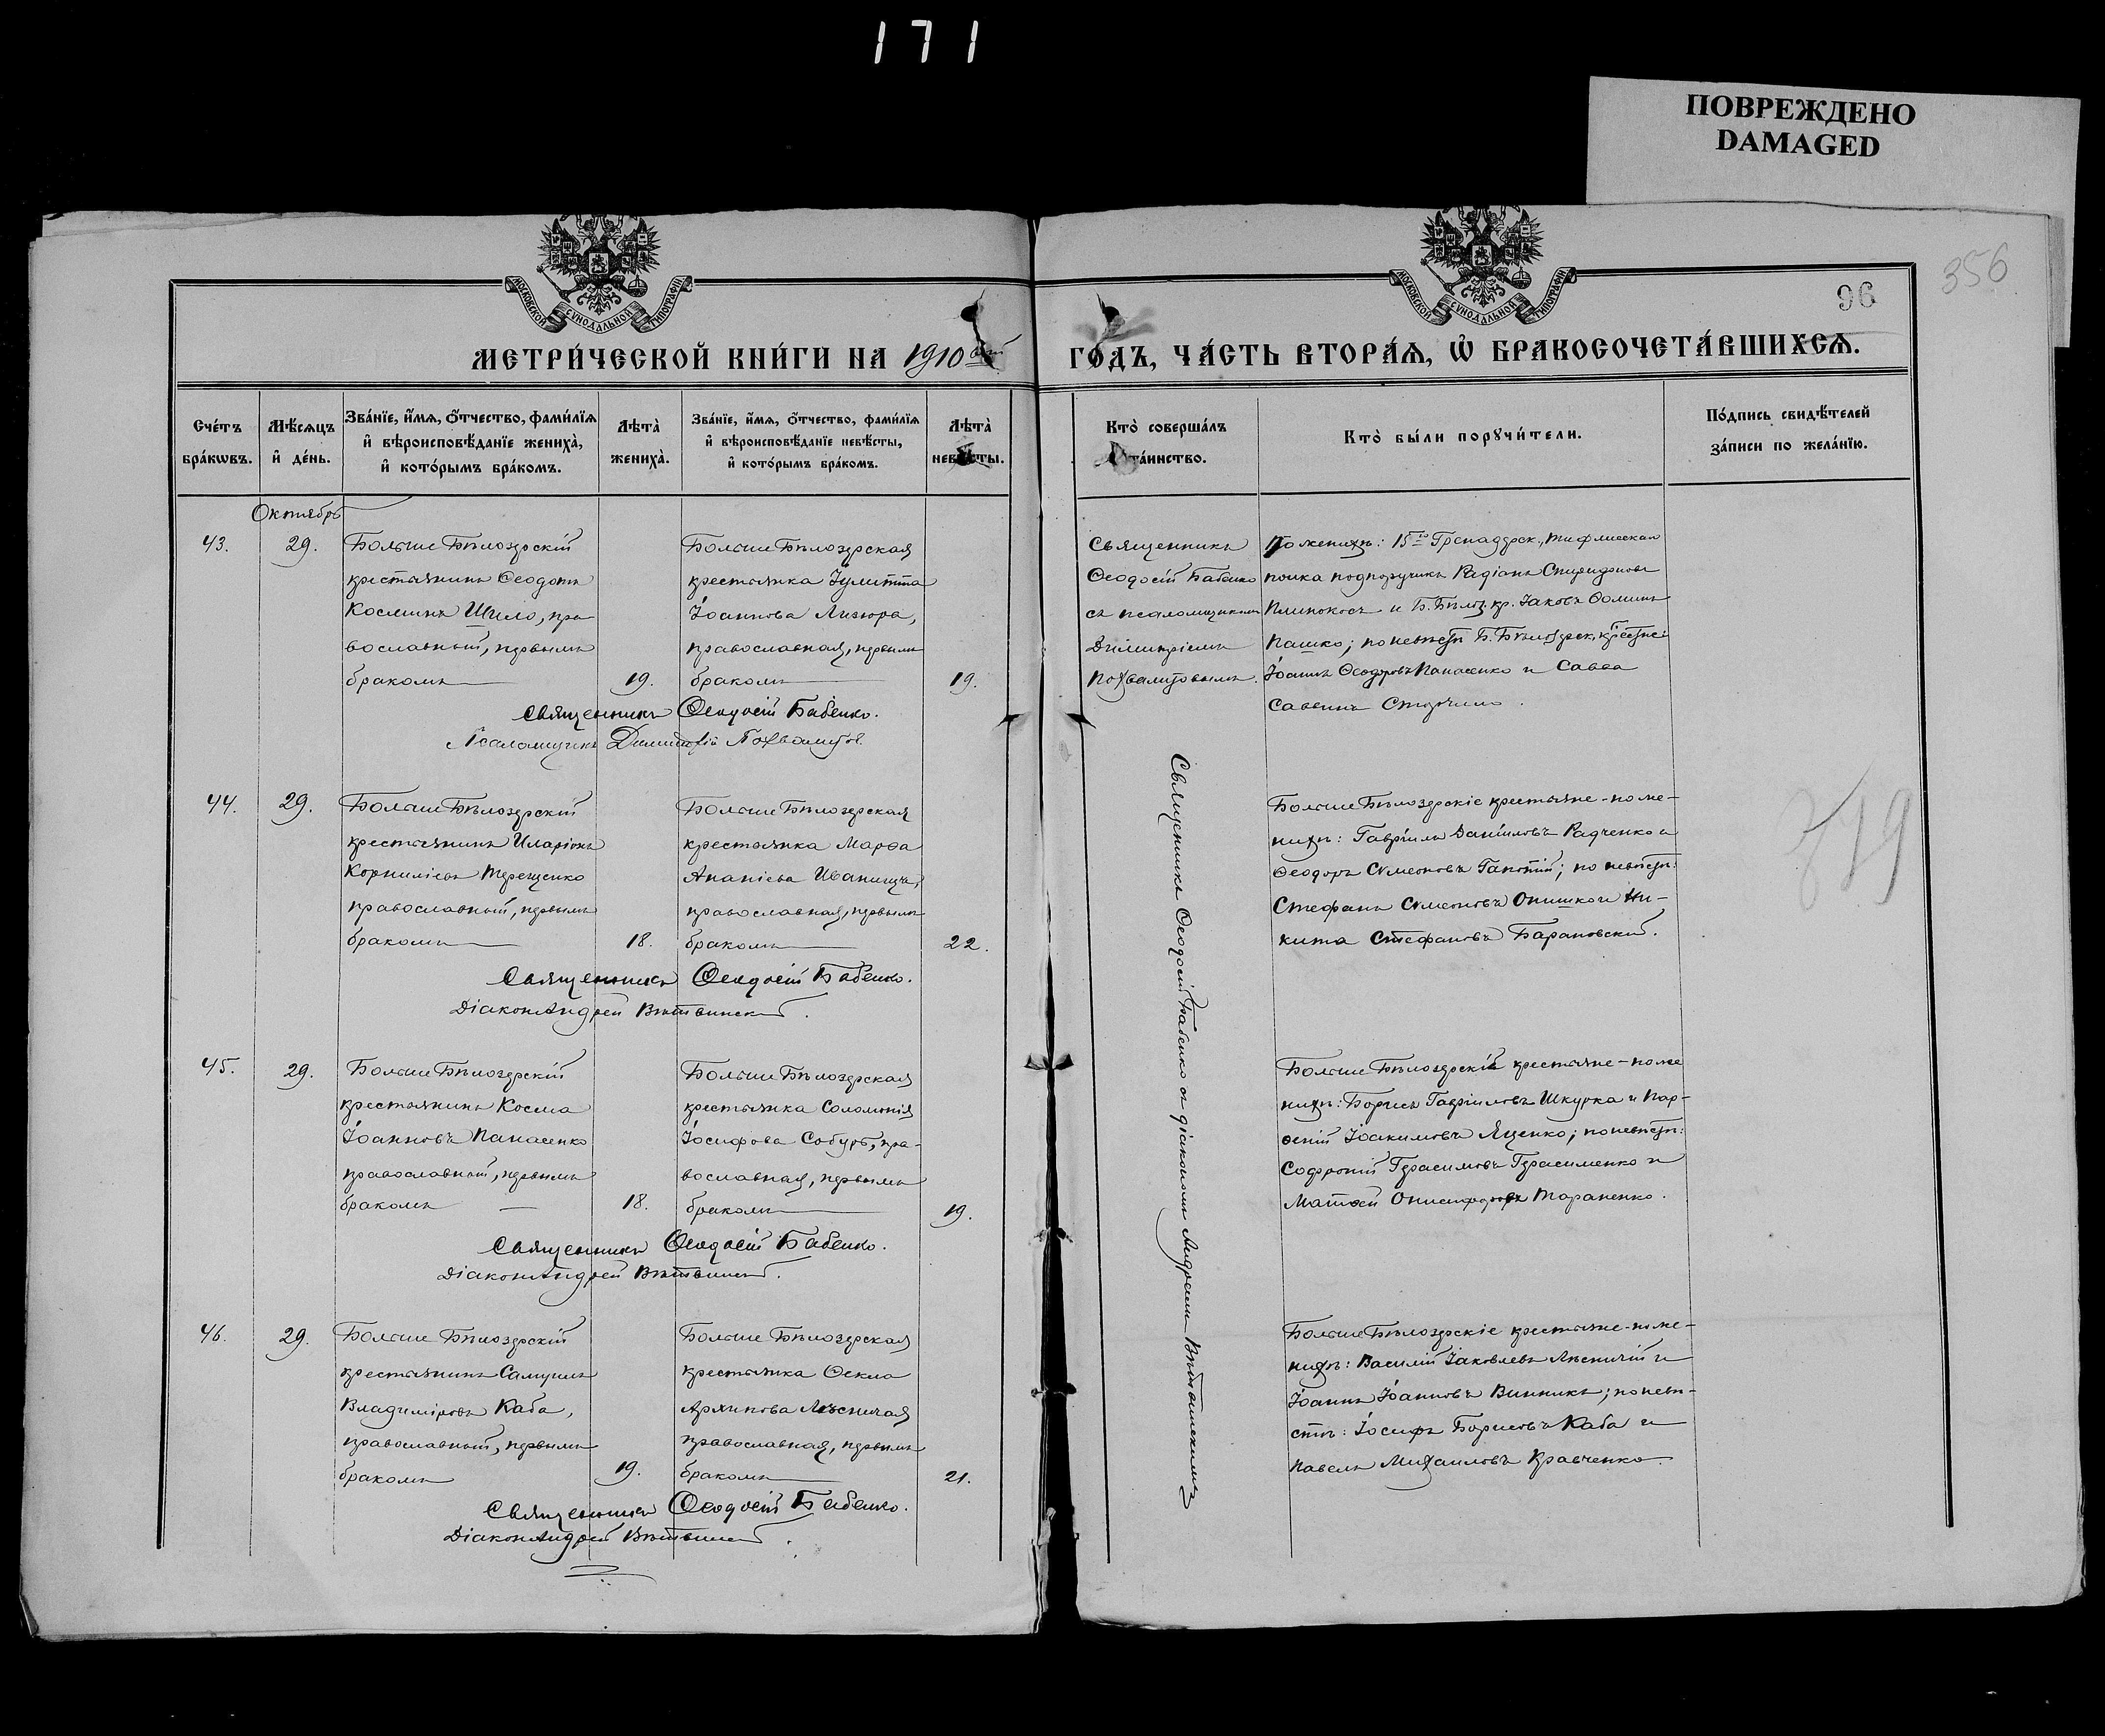 171
ПОВРЕЖДЕНО
DAMAGED
356
96
МОСКОВСКОЙ СѴНОДАЛЬНОЙ ТИПОГРАФІИ
МОСКОВСКОЙ СѴНОДАЛЬНОЙ ТИПОГРАФІИ
МЕТРИ́ЧЕСКОЙ КНИ́ГИ НА 1910ый ГО́ДЪ, ЧА́СТЬ ВТОРА́Ѧ, Ѡ҆ БРАКОСОЧЕТА́ВШИХСѦ.
Сче́тъ бра́кѡвъ.
Мѣ́сѧцъ и҆ де́нь.
Зва́нїе, и҆́мѧ, ѻ҆́тчество, фами́лїѧ и҆ вѣроисповѣ́данїе жениха̀, и҆ кото́рымъ бра́комъ.
Лѣта̀ жениха̀.
Зва́нїе, и҆́мѧ, ѻ҆́тчество, фами́лїѧ и҆ вѣроисповѣ́данїе невѣ́сты, и҆ кото́рымъ бра́комъ.
Лѣта̀ невѣ́сты.
Кто̀ соверша́лъ та́инство.
Кто̀ бы́ли порꙋчи́тели.
По́дпись свидѣ́телей за́писи по жела́нїю.
Октябрь
43.
29.
Больше Бѣлозерскій
крестьянинъ Ѳеодотъ
Косминъ Шило, пра
вославный, первымъ
бракомъ
19.
Больше Бѣлозерская
крестьянка Іулитта
Іоаннова Лизюра,
православная, первымъ
бракомъ
19.
Священникъ
Ѳеодосій Бабенко
съ псаломщикомъ
Димитріемъ
Похвалитовымъ.
По женихѣ: 15го Гренадерск. Тифлисскаго
полка подпоручикъ Радіонъ Спиридоновъ
Плинокосъ и Б. Бѣлоз. кр. Іаковъ Ѳоминъ
Пашко; по невѣстѣ Б. Бѣлозерск. крестьяне:
Іоаннъ Ѳеодоровъ Панасенко и Савва
Саввинъ
Священникъ Ѳеодосій Бабенко.
Псаломщикъ Димитрій Похвалитовъ.
44.
29.
Больше Бѣлозерскій
крестьянинъ Иларіонъ
Корниліевъ Терещенко
православный, первымъ
бракомъ
18.
Больше Бѣлозерская
крестьянка Марѳа
Ананіева Иваница,
православная, первымъ
бракомъ
22.
Больше Бѣлозерскіе крестьяне - по же-
нихѣ: Гавріилъ Даніиловъ Радченко и
Ѳеодоръ Симеоновъ Гапотій; по невѣстѣ:
Стефанъ Симеоновъ Онишко и Ни-
кита Стефановъ Барановскій.
Священникъ Ѳеодосій Бабенко.
Діаконъ Андрей Вѣтвинскій.
Священникъ Ѳеодосій Бабенко съ діакономъ Андреемъ Вѣтвинскимъ
319
45.
29.
Больше Бѣлозерскій
крестьянинъ Косма
Іоанновъ Панасенко
православный, первымъ
бракомъ
18.
Больше Бѣлозерская
крестьянка Соломонія
Іосифова Собурь, пра-
вославная, первымъ
бракомъ
19.
Больше Бѣлозерскіе крестьяне - по же
нихѣ: Борисъ Гавріиловъ Шкурка и Пар-
ѳеній Іоакимовъ Яценко; по невѣстѣ:
Софроній Герасимовъ Герасименко и
Матѳей Онисифоровъ Тараненко.
Священникъ Ѳеодосій Бабенко.
Діаконъ Андрей Вѣтвинскій.
46.
29.
Больше Бѣлозерскій
крестьянинъ Самуилъ
Владиміровъ Каба,
православный, первымъ
бракомъ
19.
Больше Бѣлозерская
крестьянка Ѳекла
Архипова Лѣсничая
православная, первымъ
бракомъ
21.
Больше Бѣлозерскіе крестьяне - по же-
нихѣ: Василій Іаковлевъ Лѣсничій и
Іоаннъ Іоанновъ Винникъ; по невѣ-
стѣ: Іосифъ Борисовъ Каба и
Павелъ Михаиловъ Кравченко
Священникъ Ѳеодосій Бабенко.
Діаконъ Андрей Вѣтвинскій.